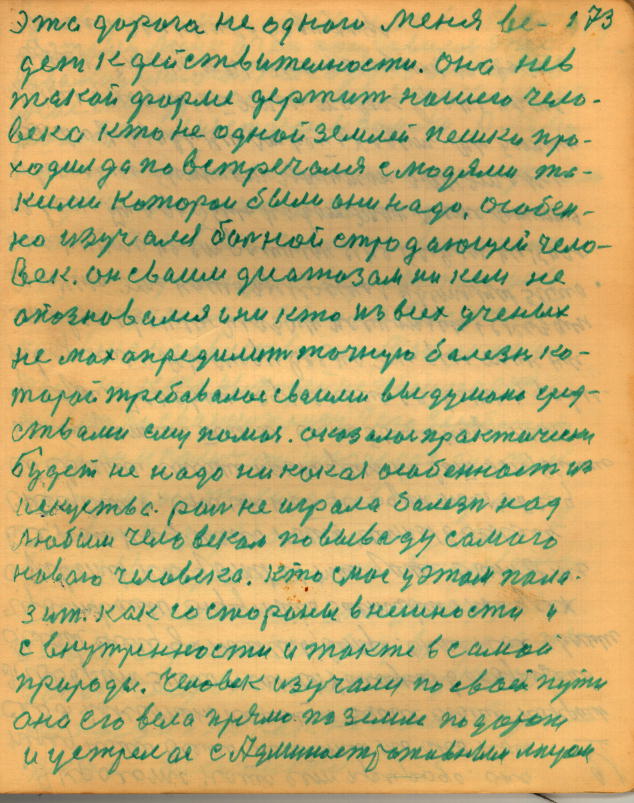 Эта дорога не одного меня ве- 173
дет к действителности. Она нев
такой форме держит нашего чело-
века кто не одной землей пешки про-
ходил да по встречался с людями та-
кими которои были они надо, особен-
но изучался болной страдающей чело-
век. он своим диагнозам ни кем не
опозновался и ни кто из всех ученых
не мах определит точную балезн ко-
торой требавалос сваими выдумано сред-
ствами ему помоч. оказалос практически
будет не надо ни какая особенност из
искуства. рол не играла балезн над
любым человекам по вываду самого
нового человека. Кто смог у этом пола-
зит. как со стороны внешности и
с внутренности и также в самой
природы. Человек изучали по своей пути
она его вела прямо по земле по дороги
и устрелас с Административным лицом